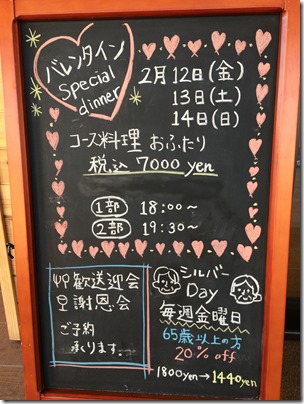 バレンタイン
special
dinner
2月12日(金)
13日(土)
14日(日)
コース料理 おふたり
税込 7000yen
1部 18:00〜
2部 19:30〜
歓送迎会
謝恩会
ご予約
承ります。
シルバー
Day
毎週金曜日
65歳以上の方
20% off
1800yen→1440yen